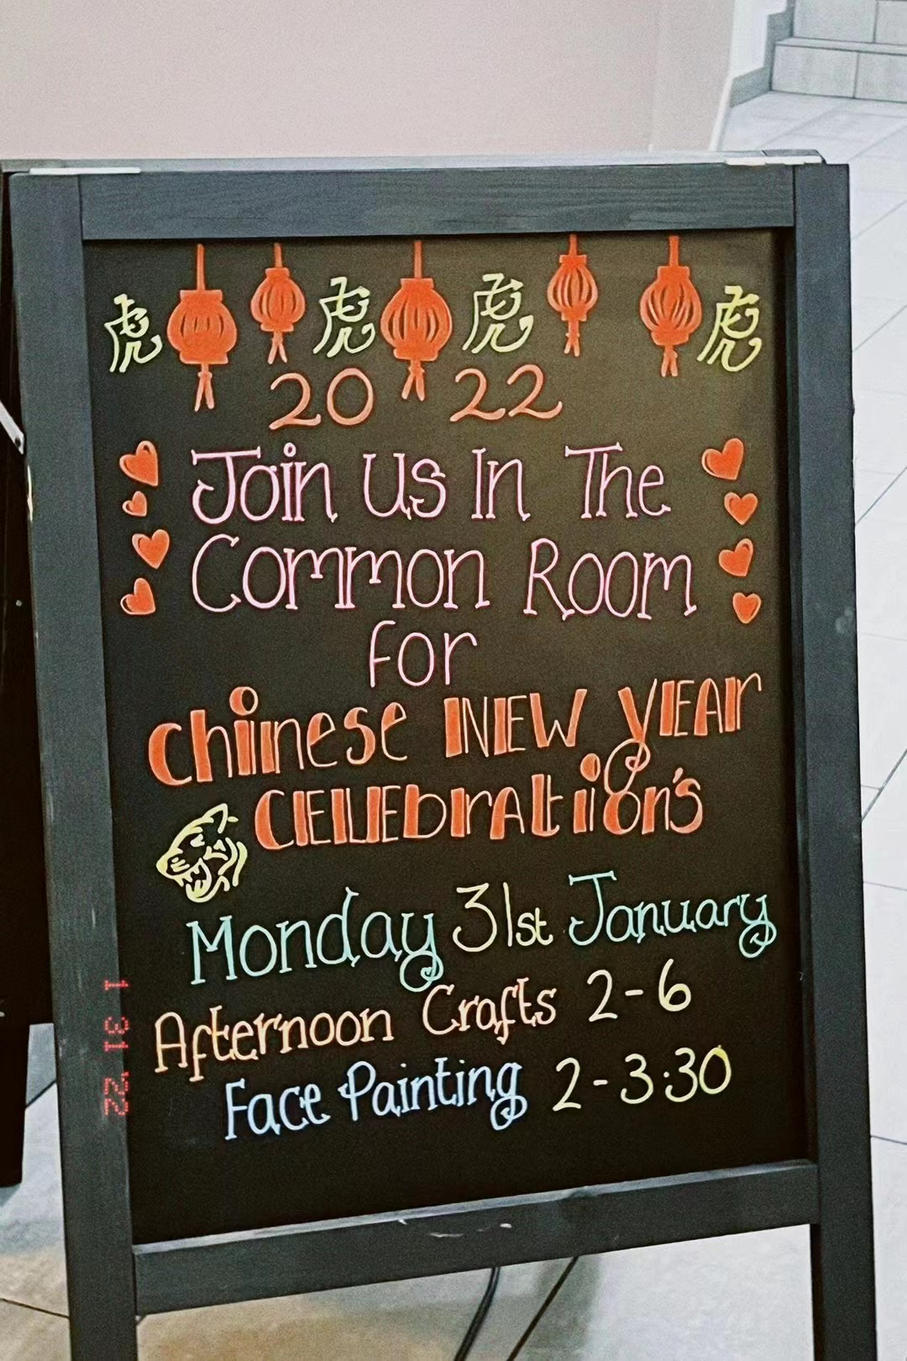 虎 虎 虎 虎
2022
Join Us In The
Common Room
For
Chinese NEW YEAr
CELEbrAtion's
Monday 31st January
Afternoon Crafts 2-6
Face Painting 2-3:30
1 31 '22